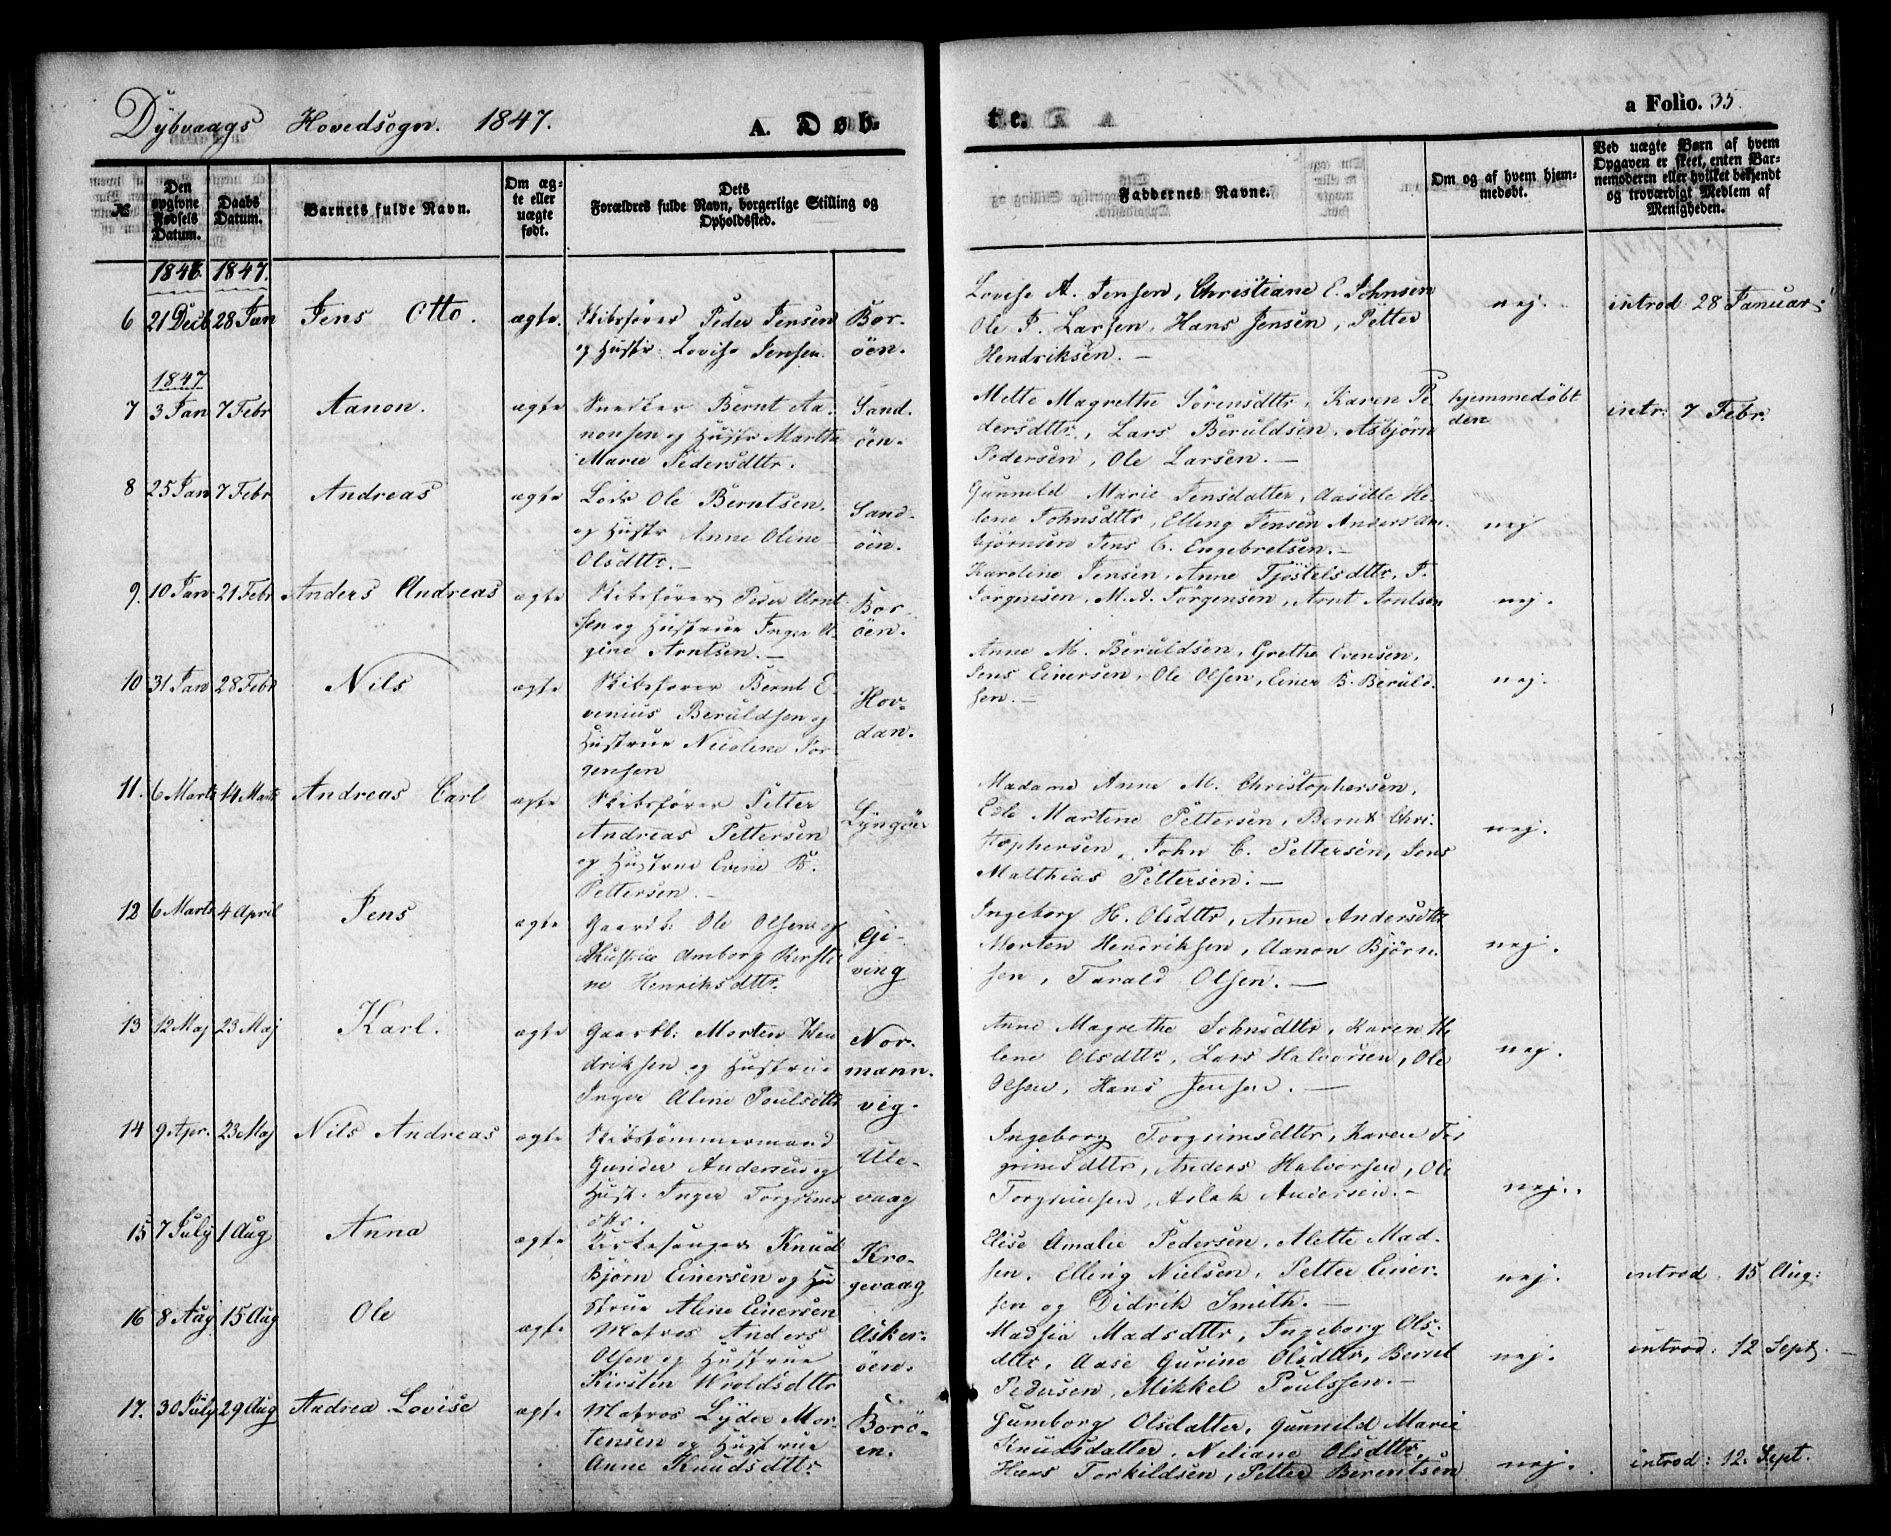 Dybvaags Hovedsogn. 1847. A. Døb-
te. a Folio. 35.
№
Den opgivne Fødsels Datum.
Daabs Datum.
Barnets fulde Navn.
Om ægte eller uægte født.
Dets
Forældres fulde Navn, borgerlige Stilling og
Opholdssted.
Faddernes Navne.
Om og af hvem hjem-
medøbt.
Ved uægte Børn af hvem
Opgaven er skeet, enten Bar-
nemoderen eller hvilket bekjendt
og troværdigt Medlem af
Menigheden.
1846. 1847.
6 21 Decb 28 Jan Jens Otto. ægte.
Skibsfører Peder Jensen
og Hustr: Lovise Jensen.
Bor-
öen.
Lovise A. Jensen, Christiane E. Johnsen
Ole P. Larsen, Hans Jensen, Petter
Hendriksen. —
nej.
introd 28 Januar:
1847
7 3 Jan 7 Febr Aanon. ægte
Snedker Bernt Aa-
nonsen og Hustr Marthe
Marie Pedersdttr.
Sand-
öen.
Mette Magrethe Sörensdttr, Karen Pe
dersdttr, Lars Beruldsen, Asbjörn
Pedersen, Ole Larsen. —
hjemmedøbt
den
intr: 7 Febr.
8 25 Jan 7 Febr Andreas ægte
Lods Ole Berntsen.
og Hustr Anne Oline
Olsdttr. —
Sand-
öen.
Gunnild Marie Jensdatter, Aasille He-
lene Johnsdttr, Elling Jensen Anders
björnsen Jens C. Engebretsen. —
nej
9. 10 Jan 21 Febr Anders Andreas ægte
Skibsfører Peder Arnt
sen og Hustrue Inger A-
gine Arntsen. —
Bor-
öen.
Karoline Jensen, Anne Tjöstelsdttr, P.
Jörgensen, M. A. Jörgensen, Arnt Arntsen
nej.
10 31 Jan 28 Febr Nils ægte
Skibsfører Bernt E-
venius Beruldsen og
Hustrue Nicoline Jör
gensen
Hov-
dan.
Anne M. Beruldsen, Grethe Evensen,
Jens Einersen, Ole Olsen, Einer B. Beruld-
sen. —
nej.
11. 6 Marts 14 Marts Andreas Carl ægte
Skibsfører Petter
Andreas Pettersen
og Hustrue Evine B.
Pettersen. —
Lyngöe
Madame Anne M. Christophersen,
Edle Martine Pettersen, Bernt Chri-
stophersen, John C. Pettersen, Jens
Matthias Pettersen. —
nej.
12 6 Marts 4 April Jens ægte
Gaardb: Ole Olsen og
Hustrue Amborg Kirsti
ne Henriksdttr.
Gi-
ving
Ingeborg H. Olsdttr, Anne Andersdttr
Morten Hendriksen, Aanon Björn-
sen, Tarald Olsen. —
nej.
13 12 Maj 23 Maj Karl. ægte
Gaardb: Morten Hen
driksen og Hustrue
Inger Aline Poulsdttr
Nor-
mann-
vig.
Anne Magrethe Johnsdttr, Karen He
lene Olsdttr, Lars Halvorsen, Ole
Olsen, Hans Jensen. —
nej.
14 9 Apr. 23 Maj Nils Andreas ægte
Skibstömmermand
Gunder Andersen og
Hust. Inger Torgrims
dttr.
Ule-
vaag
Ingeborg Torgrimsdttr, Karen Tor
grimsdttr, Anders Halvorsen, Ole
Torgrimsen, Aslak Andersen. —
nej.
15 7 July 1 Aug Anna ægte
Kirkesanger Knud
Björn Einersen og Hu
strue Aline Einersen
Kro-
gevaag
Elise Amalie Pedersen, Alette Mad-
sen, Elling Nielsen, Petter Einer-
sen og Didrik Smith. —
nej.
introd: 15 Aug:
16 8 Aug 15 Aug Ole ægte
Matros Anders
Olsen og Hustrue
Kirsten Wroldsdttr
Asker-
öen.
Madsia Madsdttr, Ingeborg Ols-
dttr, Aase Gurine Olsdttr, Bernt
Pedersen, Mikkel Poulssen. —
nej.
introd: 12 Sept. —
17. 30 July 29 Aug Andrea Lovise ægte
Matros Lyder Mor-
tensen og Hustrue
Anne Knudsdttr
Borö-
en.
Gumborg Olsdatter, Gunnild Marie
Knudsdatter, Neliane Olsdttr,
Hans Torkildsen, Petter Berentsen
nej.
introd: 12. Sept.